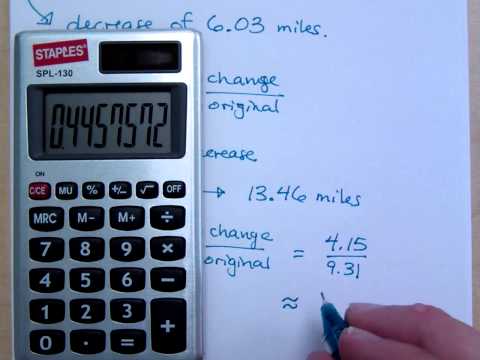 decrease of 6.03 miles.
STAPLES
SPL-130
change
original
0.4457572
crease
ON
C/CE MU % +/− √ OFF
→ 13.46 miles
MRC M− M+ ÷
change
original = 4.15
9.31
7 8 9 ×
4 5 6 −
1 2 3 +
0 · =
≈